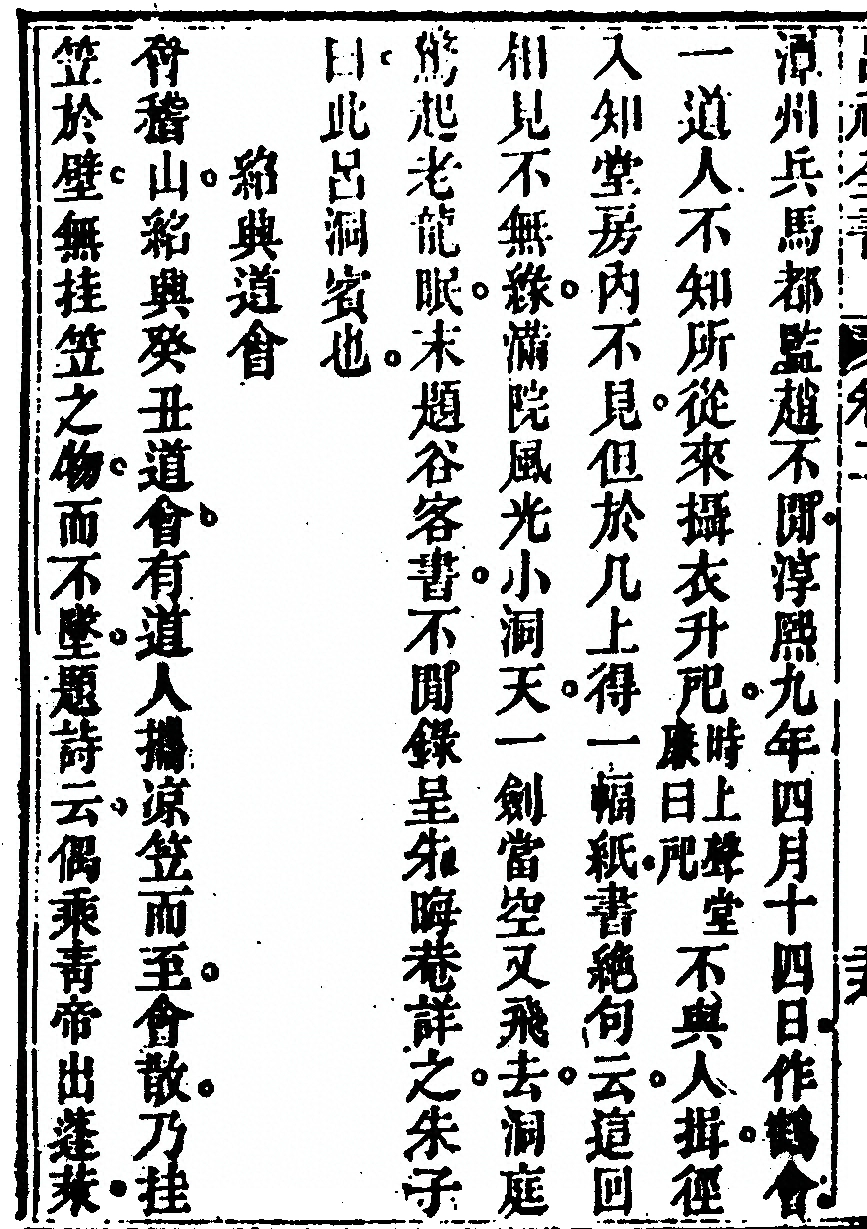 潭州兵馬都監趙不閒淳熙九年四月十四日作鶴會
一道人不知所從來攝衣升戺時上聲堂廉曰戺不與人揖徑
入知堂房內不見但於几上得一幅紙書絶句云這回
相見不無緣滿院風光小洞天一劍當空又飛去洞庭
驚起老龍眠末題谷客書不閒錄呈朱晦菴詳之朱子
曰此呂洞賓也
紹興道會
會稽山紹興癸丑道會有道人攜凉笠而至會散乃挂
笠於壁無挂笠之物而不墜題詩云偶乘青帝出蓬萊